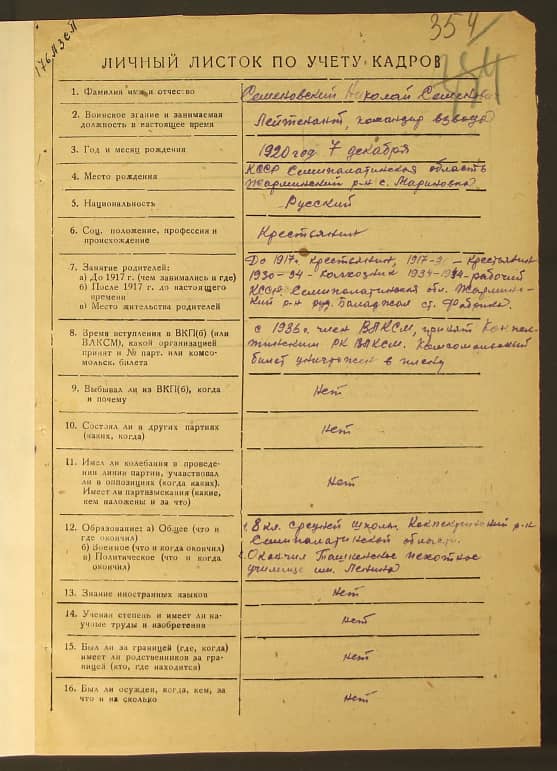 176 АЗСП
354
ЛИЧНЫЙ ЛИСТОК ПО УЧЕТУ КАДРОВ
1. Фамилия имя и отчество
Семеновский Николай Семенович
2. Воинское звание и занимаемая
должность в настоящее время
Лейтенант, командир взвода
3. Год и месяц рождения
1920 год 7 декабря
4. Место рождения
КССР Семипалатинская область
Жарминский р-н с. Мариновка
5. Национальность
Русский
6. Соц. положение, профессия и
происхождение
Крестьянин
7. Занятие родителей:
а) До 1917 г. (чем занимались и где)
б) После 1917 г. до настоящего
времени
в) Место жительства родителей
До 1917г. Крестьянин, 1917-31 – крестьянин
1930-34 - колхозник 1934-1944-рабочий
КССР Семипалатинская обл. Жарминс-
кий р-н руд. Баладжал ст. Фабрика.
8. Время вступления в ВКП(б) (или
ВЛКСМ), какой организацией
принят и № парт. или комсо-
мольск. билета
с 1936г. член ВЛКСМ, принят Кокпек-
тинским РК ВЛКСМ. Комсомольский
билет уничтожен в плену
9. Выбывал ли из ВКП(б), когда
и почему
Нет
10. Состоял ли в других партиях
(каких, когда)
Нет
11. Имел ли колебания в проведе-
нии линии партии, участвовал
ли в оппозициях (когда каких).
Имеет ли партвзыскания (какие,
кем наложены и за что)
Нет
12. Образование: а) Общее (что и
где окончил)
б) Военное (что и когда окончил)
в) Политическое (что и когда
окончил)
1. 8 кл. средней школы Кокпектинский р-н
Семипалатинской области.
2. Окончил Ташкенское пехотное
училище им. Ленина
13. Знание иностранных языков
Нет
14. Ученая степень и имеет ли на-
учные труды и изобретения
Нет
15. Был ли за границей (где, когда)
имеет ли родственников за гра-
ницей (кто, где находится)
Нет
16. Был ли осужден, когда, кем, за
что и на сколько
Нет